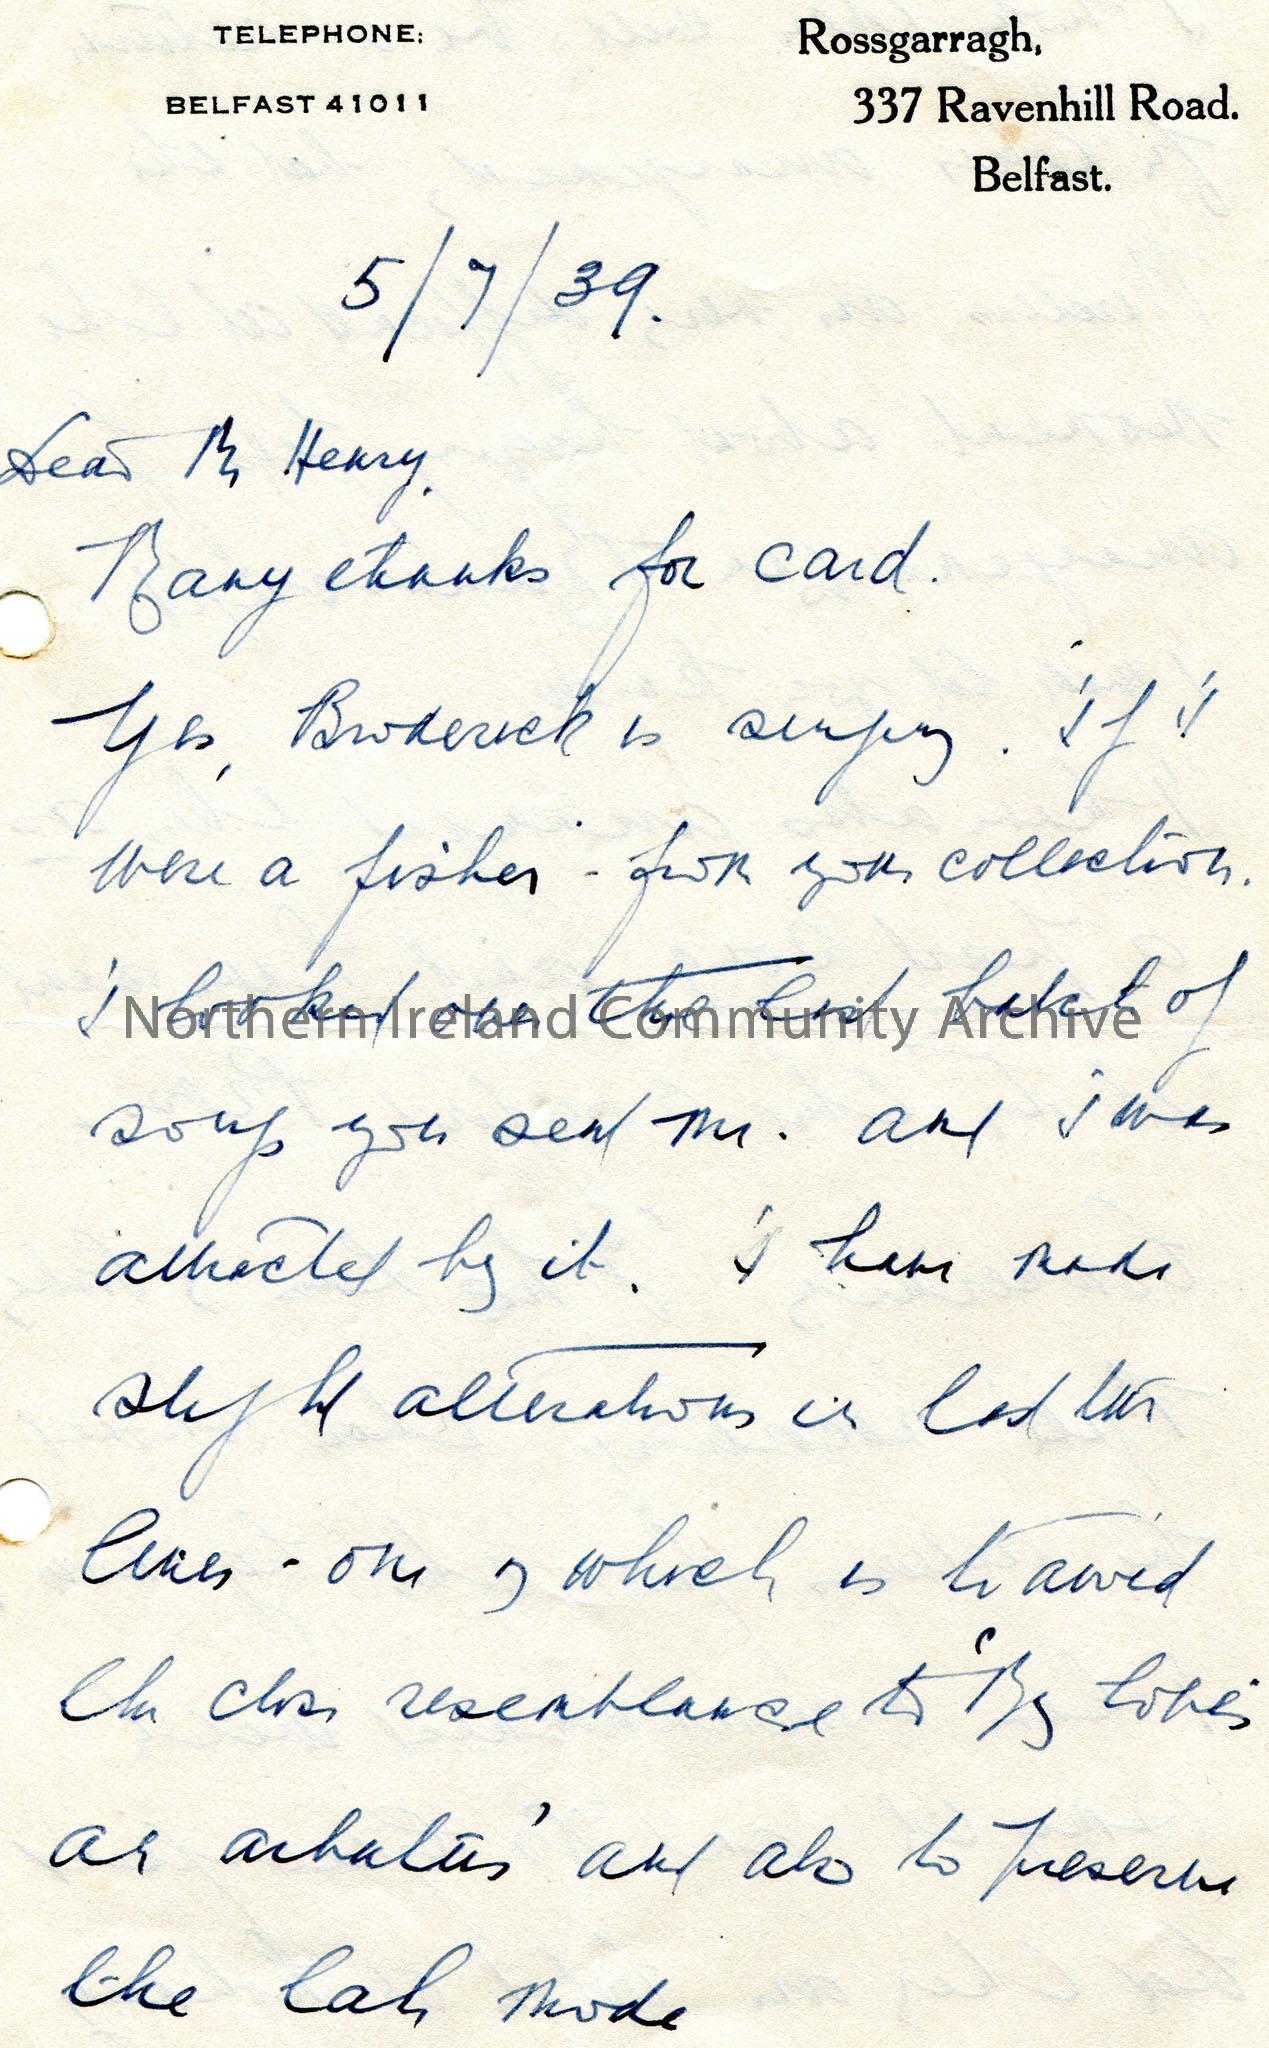 TELEPHONE:
BELFAST 41011
Rossgarragh,
337 Ravenhill Road.
Belfast.
5/7/39.
Dear Mr Henry,
Many thanks for card.
Yes, Broderick is singing. 'If I
were a fisher' - from your collection.
I looked over the last batch of
songs you sent me. and I was
attracted by it. I have made
slight alterations in last two
lines - one of which is to avoid
the close resemblance to 'My love's
an arbutus' and also to preserve
the lah mode
Northern Ireland Community Archive